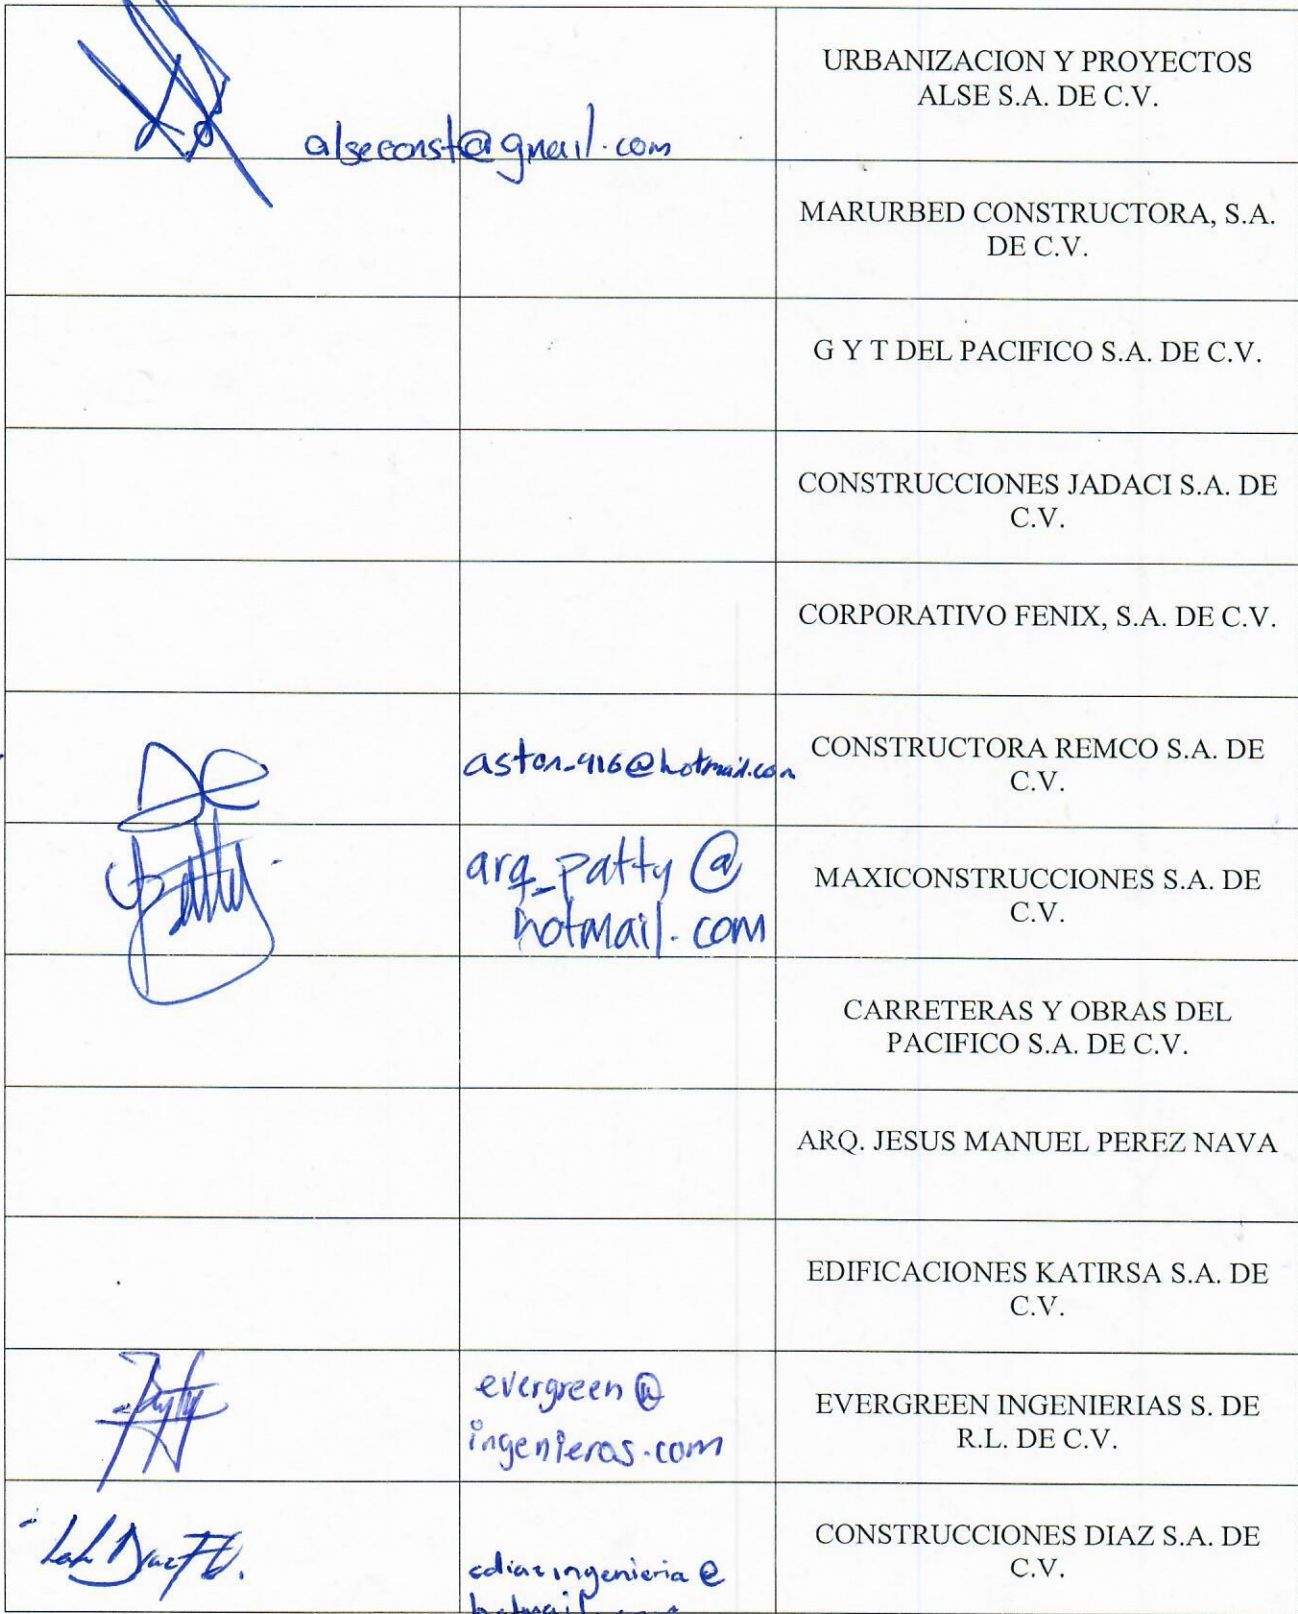 URBANIZACION Y PROYECTOS
ALSE S.A. DE C.V.
alseconst@gmail.com
MARURBED CONSTRUCTORA, S.A.
DE C.V.
G Y T DEL PACIFICO S.A. DE C.V.
CONSTRUCCIONES JADACI S.A. DE
C.V.
CORPORATIVO FENIX, S.A. DE C.V.
aston_916@hotmail.com
CONSTRUCTORA REMCO S.A. DE
C.V.
Patty
arq_patty@
hotmail.com
MAXICONSTRUCCIONES S.A. DE
C.V.
CARRETERAS Y OBRAS DEL
PACIFICO S.A. DE C.V.
ARQ. JESUS MANUEL PEREZ NAVA
EDIFICACIONES KATIRSA S.A. DE
C.V.
evergreen@
ingenieros.com
EVERGREEN INGENIERIAS S. DE
R.L. DE C.V.
cdiazingenieria@
hotmail.com
CONSTRUCCIONES DIAZ S.A. DE
C.V.